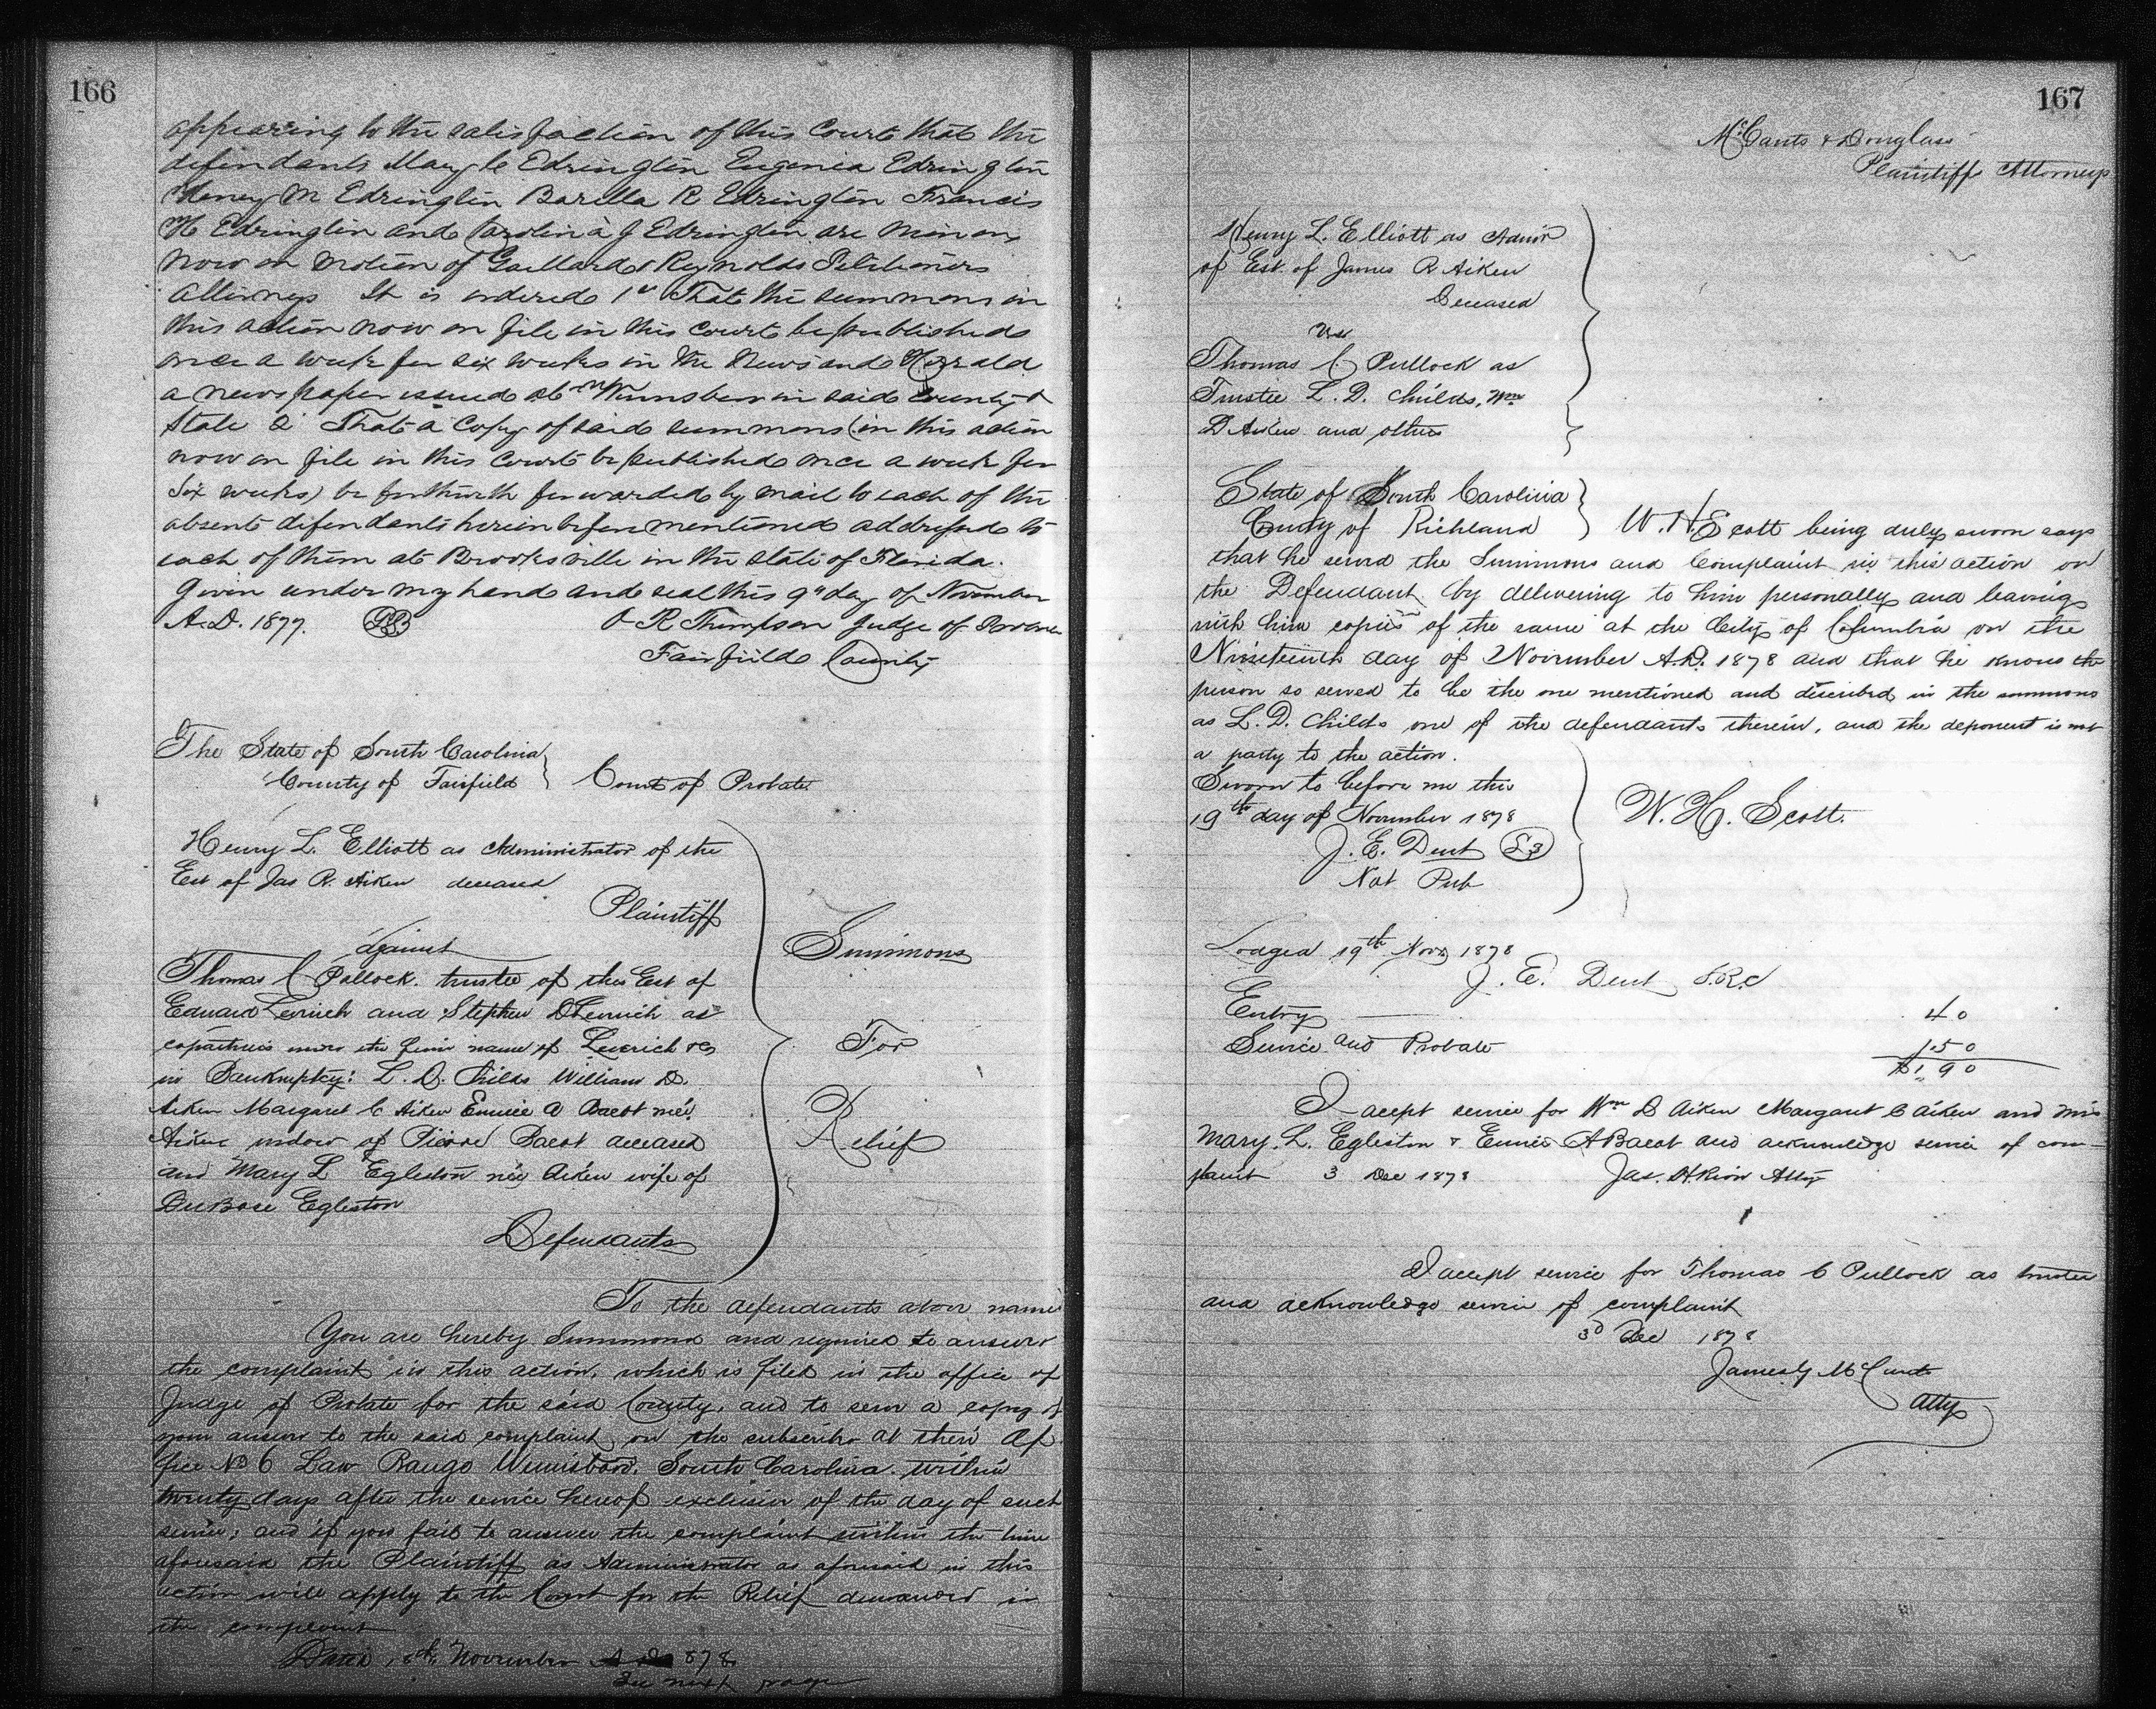 166
appearing to the satisfaction of this Court that the
defendants Mary C Edrington Eugenia Edrington
Henry M Edrington Barella R Edrington Francis
H Edrington and Carolina J Edrington are Minors
Now on motion of Gaillard & Reynolds Petitioners
Attorneys It is ordered 1st That the summons in
this action now on file in this Court be published
once a week for six weeks in the News and Herald
a newspaper issued at Winnsboro in said County &
State 2 That a Copy of said summons (in this action
now on file in this Court be published once a week for
Six weeks) be forthwith forwarded by mail to each of the
absent defendants herein before mentioned addressed to
each of them at Brooksville in the State of Florida.
Given under my hand and seal this 9" day of November
A.D. 1877. O R Thompson Judge of Probate
Fairfield County
The State of South Carolina
County of Fairfield } Court of Probate.
Henry L. Elliott as Administrator of the
Est of Jas R. Aiken deceased
Plaintiff
against
Summons
Thomas C Pullock. trustee of the Est of
Edward Leverich and Stephen D Leverich as
copartners under the firm name of Leverich & Co
For
in Bankruptcy: L. D. Childs William D.
Aiken Margaret C Aiken Eunice A Bacot neé
Aiken widow of Pierre Bacot deceased
Relief
and Mary L Egleston neé Aiken wife of
DuBose Egleston
Defendants
To the defendants above named
You are hereby Summoned and required to answer
the complaint in this action, which is filed in the office of
Judge of Probate for the said County, and to serve a copy of
your answer to the said complaint on the subscriber at their Of
fice No 6 Law Range Winnsboro, South Carolina. within
twenty days after the service hereof exclusive of the day of such
service; and if you fail to answer the complaint within the time
aforesaid the Plaintiff as Administrator as aforesaid in this
action will apply to the Court for the Relief demanded in
the complaint
Dated November 1878
See next page
167
McCants & Douglass
Plaintiffs Attorneys
Henry L. Elliott as Admor
of Est. of James R Aiken
Deceased
vs
Thomas C. Pullock as
Trustee L. D. Childs, Wm
D Aiken and others
State of South Carolina }
County of Richland } W. H. Scott being duly sworn says
that he served the Summons and Complaint in this action on
the Defendant by delivering to him personally and leaving
with him copies of the same at the City of Columbia on the
Nineteenth day of November A.D. 1878 and that he knows the
person so served to be the one mentioned and described in the summons
as L. D. Childs one of the defendants therein, and the deponent is not
a party to the action.
Sworn to before me this
19th day of November 1878 W. H. Scott.
J. E. Dent LS
Not Pub
Lodged 19th Nov 1878
J. E. Dent S.R.C
Entry — 40
Service and Probate 1.50
$1.90
I accept service for Wm D Aiken Margaret C Aiken and Mrs
Mary. L. Egleston & Eunice A Bacot and acknowledge service of com-
plaint 3 Dec 1878 Jas. H. Rion Atty
I accept service for Thomas C Pullock as trustee
and acknowledge service of complaint
3d Dec 1878
James G McCants
Atty